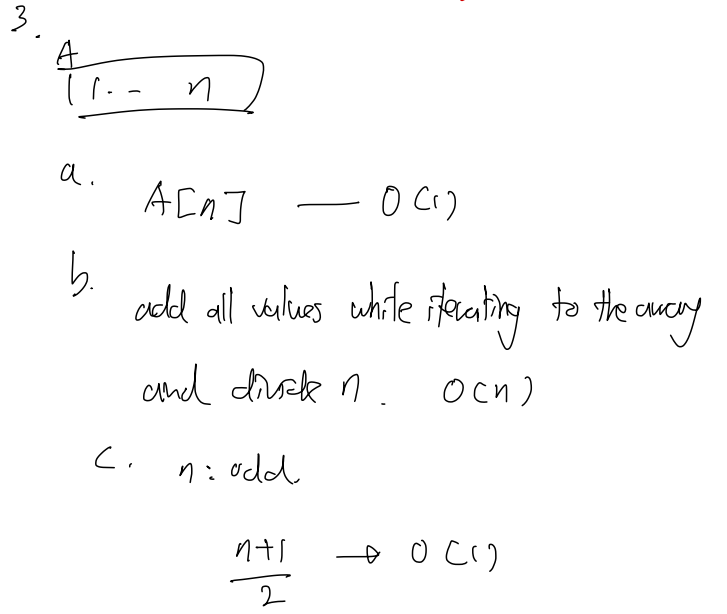 3.
A
1 1 . . - n
a.
A[n] — O(1)
b.
add all values while iterating to the array
and divide n. O(n)
c. n: odd.
n+1
2
→ O(1)